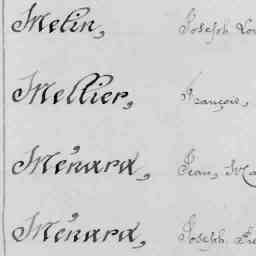 Melin, Joseph Lou
Mellier, François,
Ménard, Jean, Ma
Ménard, Joseph